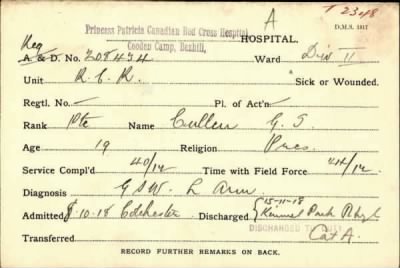 T 2348
A
Princess Patricia Canadian Red Cross Hospital
Cooden Camp, Bexhill,
HOSPITAL.
D.M.S. 1317
Reg
A & D. No. 208434 Ward Div II
Unit R.C.R. Sick or Wounded.
Regtl. No. Pl. of Act'n
Rank Pte Name Cullen G. S.
Age 19 Religion Pres.
Service Compl'd 40/12 Time with Field Force /12
Diagnosis GSW L Arm
Admitted 8-10-18 Colchester Discharged 15-11-18
Kinmel Park Rhyl
DISCHARGED TO DUTY
Transferred Cat A.
RECORD FURTHER REMARKS ON BACK.